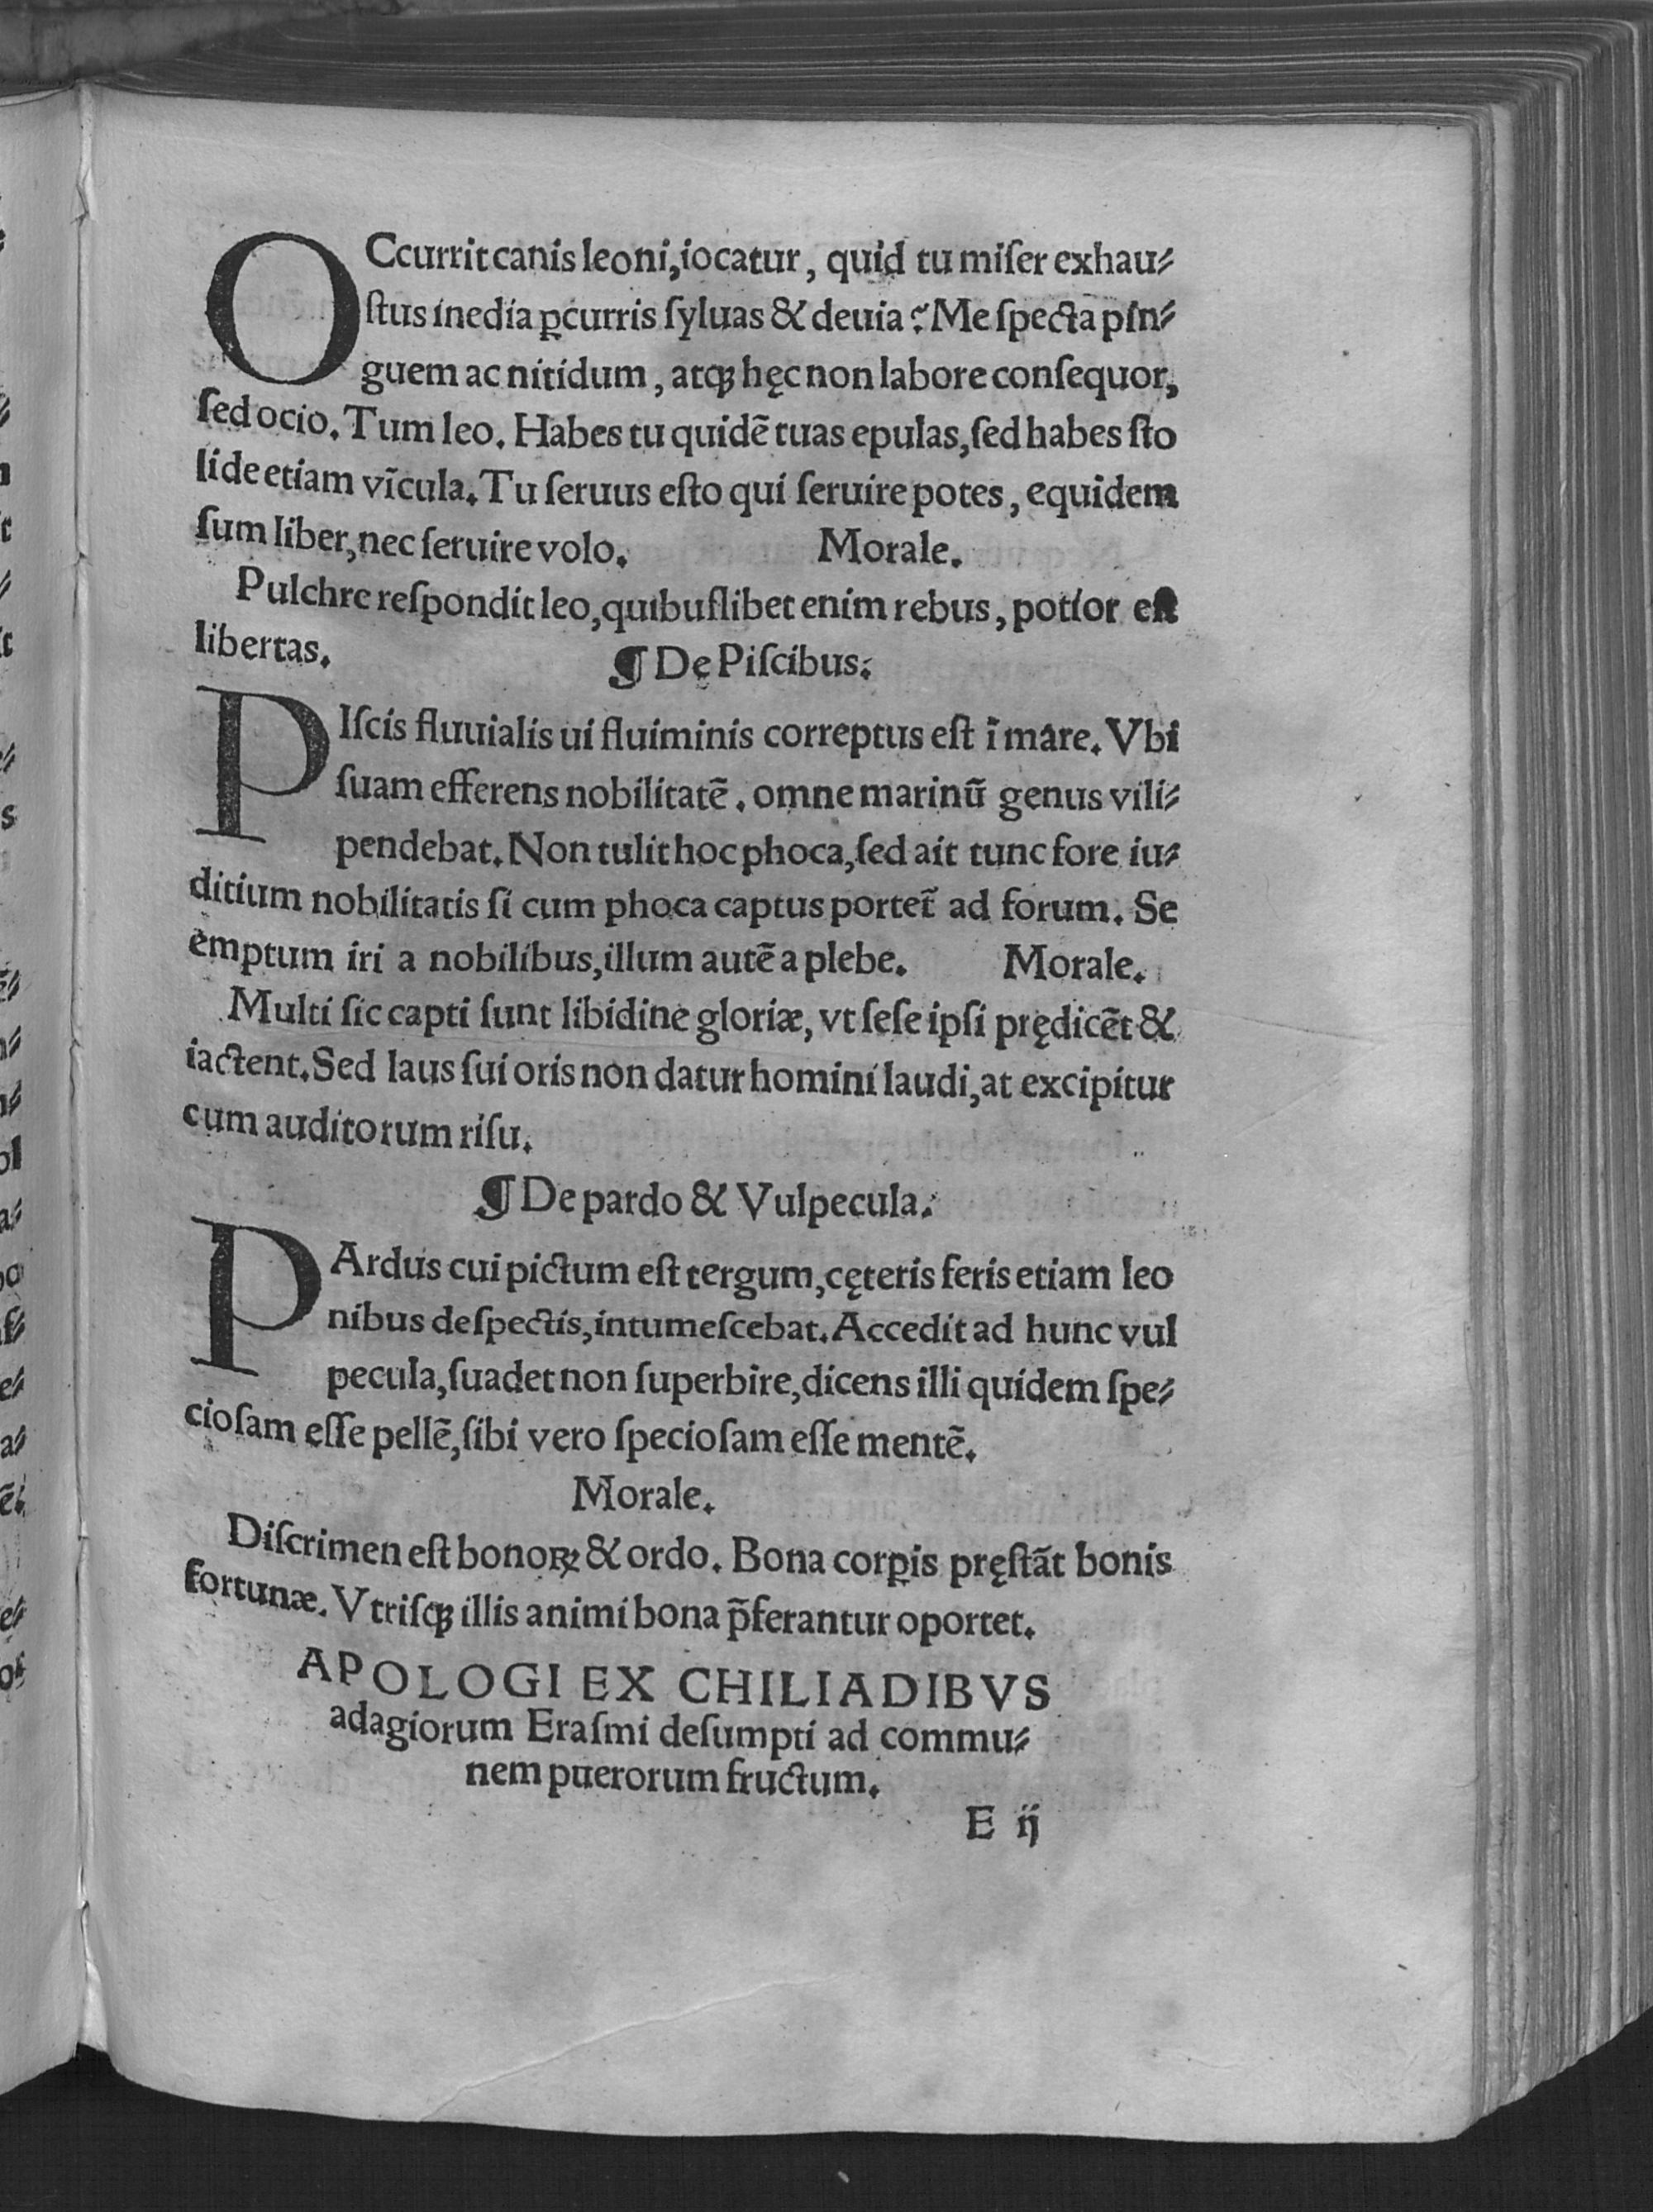 OCcurrit canis leoni, iocatur, quid tu miſer exhau⸗
ſtus inedia ꝑcurris ſyluas & deuia? Me ſpecta pin⸗
guem ac nitidum, atqꝫ hęc non labore conſequor,
ſed ocio. Tum leo. Habes tu quidē tuas epulas, ſed habes ſto
lide etiam vīcula. Tu ſeruus eſto qui ſeruire potes, equidem
ſum liber, nec ſeruire volo. Morale.
Pulchre reſpondit leo, quibuſlibet enim rebus, potior eſt
libertas. ¶ De Piſcibus.
PIſcis fluuialis ui fluiminis correptus eſt ī mare. Vbi
ſuam efferens nobilitatē. omne marinū genus vili⸗
pendebat. Non tulit hoc phoca, ſed ait tunc fore iu⸗
ditium nobilitatis ſi cum phoca captus portet̄ ad forum. Se
emptum iri a nobilibus, illum autē a plebe. Morale.
Multi ſic capti ſunt libidine gloriæ, vt ſeſe ipſi prędicēt &
iactent. Sed laus ſui oris non datur homini laudi, at excipitur
cum auditorum riſu.
¶ De pardo & Vulpecula.
PArdus cui pictum eſt tergum, cęteris feris etiam leo
nibus deſpectis, intumeſcebat. Accedit ad hunc vul
pecula, ſuadet non ſuperbire, dicens illi quidem ſpe⸗
cioſam eſſe pellē, ſibi vero ſpecioſam eſſe mentē.
Morale.
Diſcrimen eſt bonoꝝ & ordo. Bona corꝑis pręſtāt bonis
fortunæ. Vtriſqꝫ illis animi bona p̄ferantur oportet.
APOLOGI EX CHILIADIBVS
adagiorum Eraſmi deſumpti ad commu⸗
nem puerorum fructum.
E ij